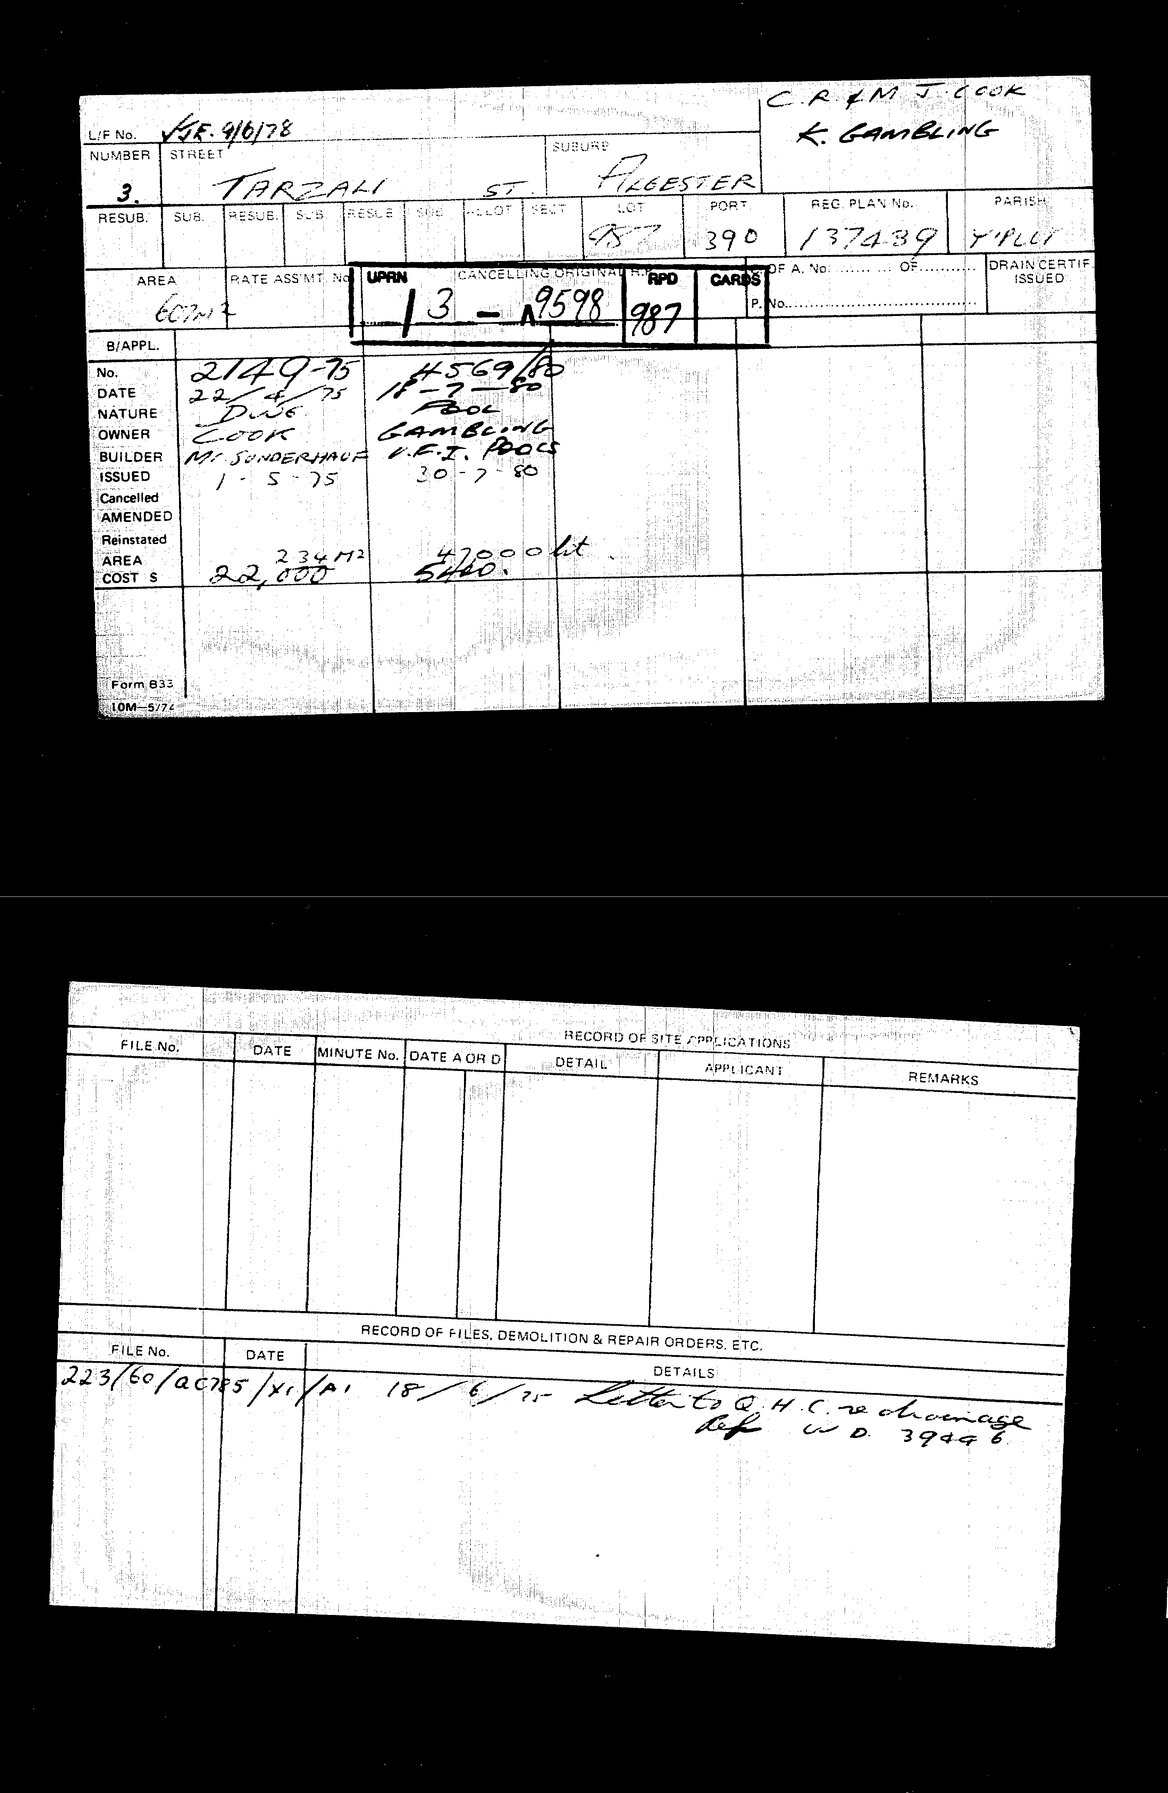 C. R & M J. COOK
L/F No. √JE. 9/6/78
K. GAMBLING
NUMBER STREET SUBURB
3. TARZALI ST. ALGESTER
RESUB. SUB. RESUB. SUB RESUB SUB ALLOT SECT LOT PORT. REG. PLAN No. PARISH
987 390 137439 Y'PILLY
AREA RATE ASS'MT. No UPRN CANCELLING ORIGINAL RPD CARDS OF A. No. OF DRAIN CERTIF. ISSUED
607M2 3 - 9598 987 P. No.
B/APPL.
No. 2149-75 4569/80
DATE 22/4/75 18-7-80
NATURE DWG POOL
OWNER COOK GAMBLING
BUILDER Mr. SUNDERHAUF V.F.I. POOLS
ISSUED 1-5-75 30-7-80
Cancelled
AMENDED
Reinstated
AREA 234M2 47000 lit.
COST $ 22,000 5400.
Form B33
10M—5/74
RECORD OF SITE APPLICATIONS
FILE No. DATE MINUTE No. DATE A OR D DETAIL APPLICANT REMARKS
RECORD OF FILES, DEMOLITION & REPAIR ORDERS, ETC.
FILE No. DATE DETAILS
223/60/ 18/6/75 Letter to Q.H.C. re drainage
Ref W D. 39446